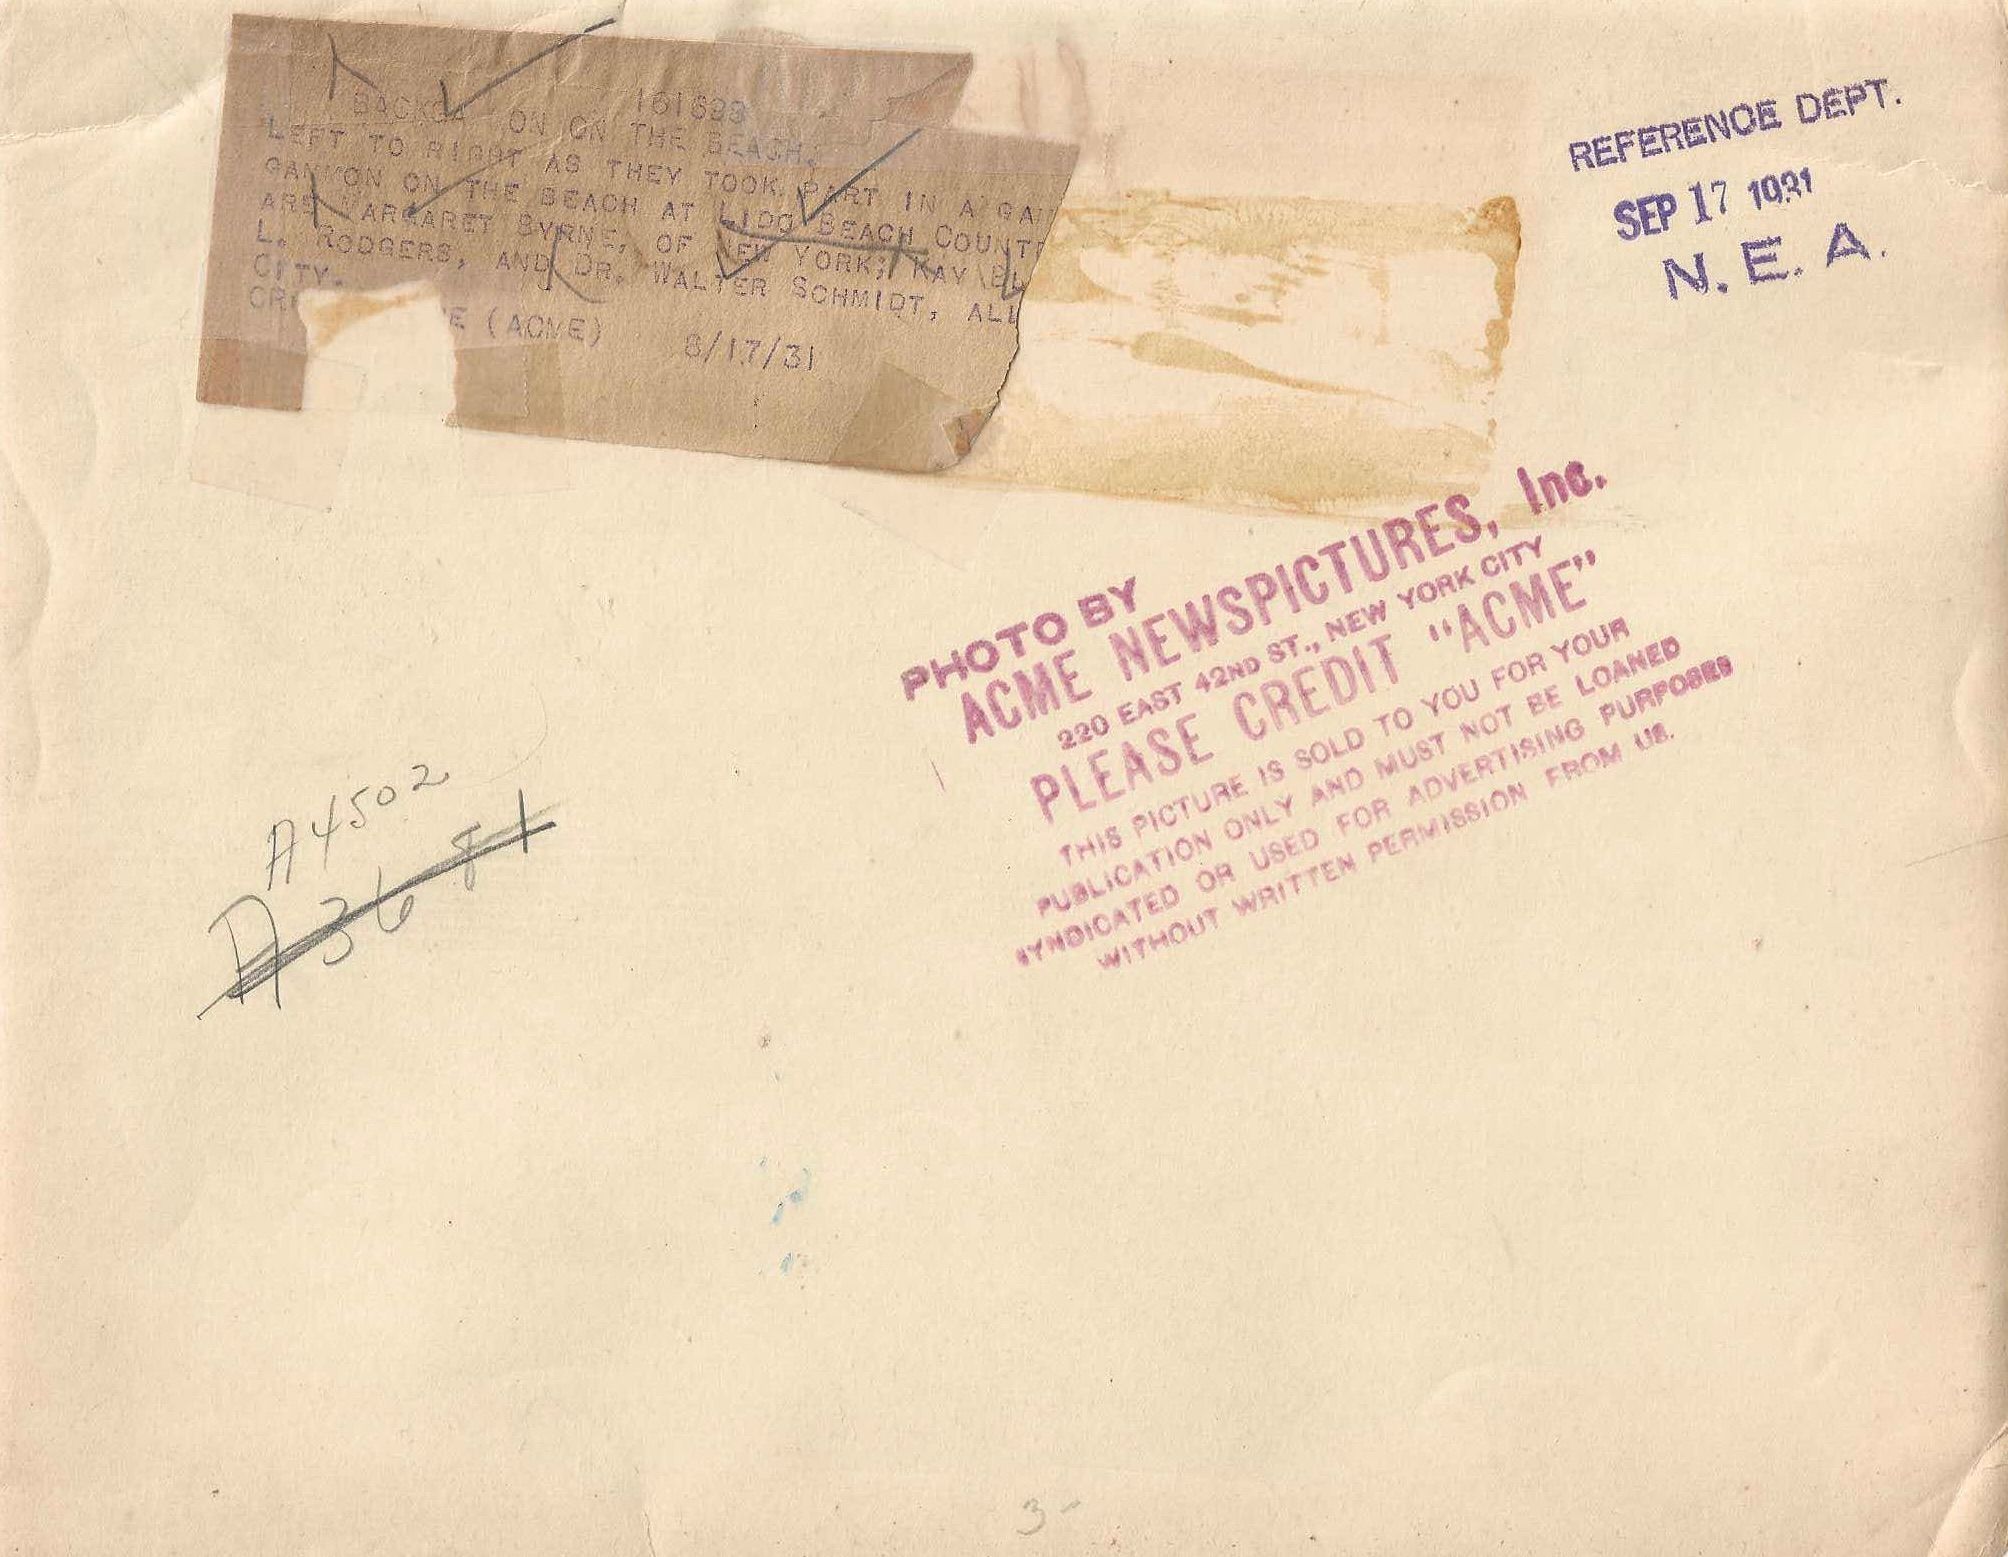 161699
BACKG ON ON THE BEACH.
LEFT TO RIGHT AS THEY TOOK PART IN A GA
GAMMON ON THE BEACH AT LIDO BEACH COUNT
ARE MARGARET BYRNE, OF NEW YORK; KAY
L. RODGERS, AND DR. WALTER SCHMIDT, ALL
CITY.
E (ACME) 8/17/31
REFERENCE DEPT.
SEP 17 1931
N. E. A.
PHOTO BY
ACME NEWSPICTURES, Inc.
220 EAST 42ND ST., NEW YORK CITY
PLEASE CREDIT "ACME"
THIS PICTURE IS SOLD TO YOU FOR YOUR
PUBLICATION ONLY AND MUST NOT BE LOANED
SYNDICATED OR USED FOR ADVERTISING PURPOSES
WITHOUT WRITTEN PERMISSION FROM US.
A4502
A3681
3-